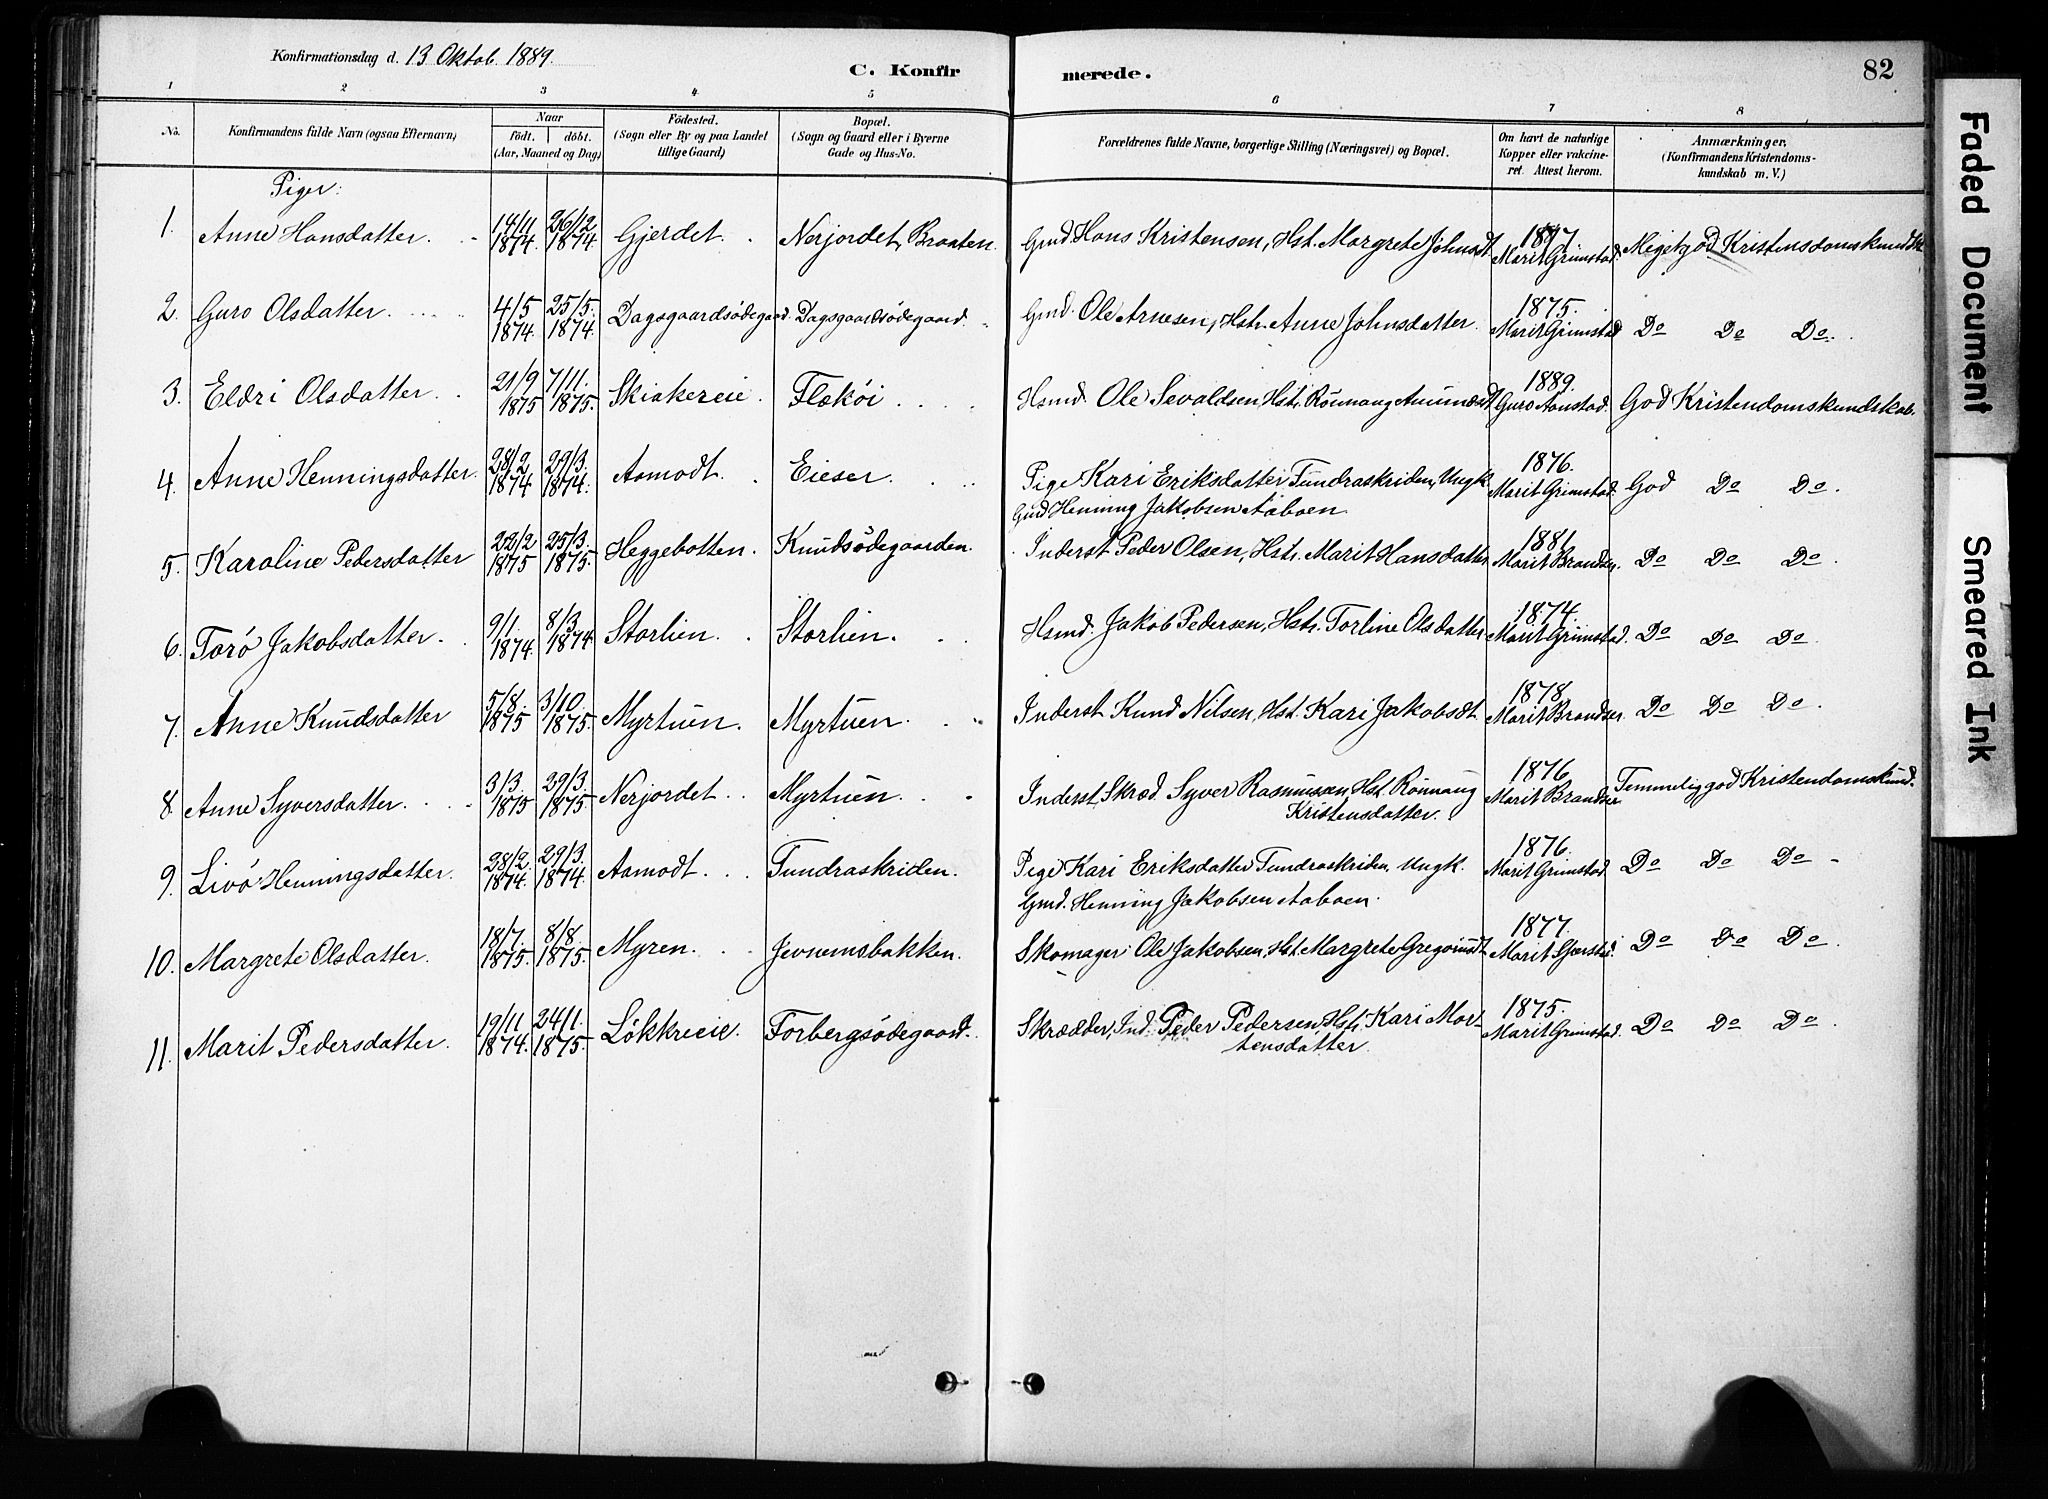 Konfirmationsdag d. 13 Oktob. 1889.
C. Konfirmerede.
82
1 2 3 4 5 6 7 8
No. Konfirmandens fulde Navn (ogsaa Efternavn) Naar født. døbt. (Aar, Maaned og Dag) Fødested. (Sogn eller By og paa Landet tillige Gaard) Bopæl. (Sogn og Gaard eller i Byerne Gade og Hus-No. Forældrenes fulde Navne, borgerlige Stilling (Næringsvei) og Bopæl. Om havt de naturlige Kopper eller vakcineret. Attest herom. Anmærkninger. (Konfirmandens Kristendomskundskab m. V.)
Piger:
1. Anne Hansdatter. 14/11 1874. 26/12 1874. Gjerdet. Nerjordet, Braaten. Gmd. Hans Kristensen, Hst. Margrete Johnsdt. 1877. Marit Grimstad. Meget god Kristendomskundsk.
2. Guro Olsdatter. 4/5 1874. 25/5. 1874. Dagsgaardsødegaard. Dagsgaardsødegaard. Gmd. Ole Arnesen, Hstr. Anne Johnsdatter. 1875. Marit Grimstad Do Do Do.
3. Eldri Olsdatter. 21/9 1875 7/11. 1875. Skiakereie. Flækøi. Hsmd. Ole Sevaldsen, Hst. Rønnaug Amundsdt 1889. Guro Aanstad. God Kristendomskundskab.
4. Anne Henningsdatter. 28/2 1874 29/3. 1874. Aamodt. Eieser. Pige Kari Eriksdatter Tundraskriden, Ungk.
Gmd Henning Jakobsen Aaboen 1876. Marit Grimstad. God Do Do.
5. Karoline Pedersdatter 22/2 1875 25/3. 1875. Heggebotten. Knudsødegaarden. Inderst Peder Olsen, Hstr. Marit Hansdatter 1881. Marit Brandser. Do Do Do.
6. Torø Jakobsdatter. 9/1. 1874. 8/3 1874. Storlien. Storlien. Hsmd. Jakob Pedersen, Hstr. Torline Olsdatter 1874. Marit Grimstad. Do Do Do.
7. Anne Knudsdatter 5/8. 1875 3/10. 1875. Myrtuen. Myrtuen. Inderst Knud Nilsen, Hst. Kari Jakobsdt. 1878. Marit Brandser. Do Do Do.
8. Anne Syversdatter. 3/3. 1875 29/3. 1875 Nerjordet. Myrtuen. Inderst, Skræd. Syver Rasmussen, Hst. Rønnaug
Kristensdatter. 1876 Marit Brandser Temmelig god Kristendomskund.
9. Livø Henningsdatter. 28/2. 1874. 29/3. 1874. Aamodt. Tundraskriden. Pige Kari Eriksdatter Tundraskriden, Ungk.
Gmd. Henning Jakobsen Aaboen. 1876. Marit Grimstad Do Do Do
10. Margrete Olsdatter. 18/7. 1875. 8/8. 1875. Myren. Jevnemsbakken. Skomager Ole Jakobsen, Hst. Margrete Gregoriusdt. 1877. Do Do Do.
11. Marit Pedersdatter. 19/11 1874. 24/1. 1875. Løkkreie. Forbergsødegaard. Skrædder, Ind. Peder Pedersen, Hstr. Kari Mor-
tensdatter. 1875. Marit Grimstad. Do Do Do.
Faded Document
Smeared Ink